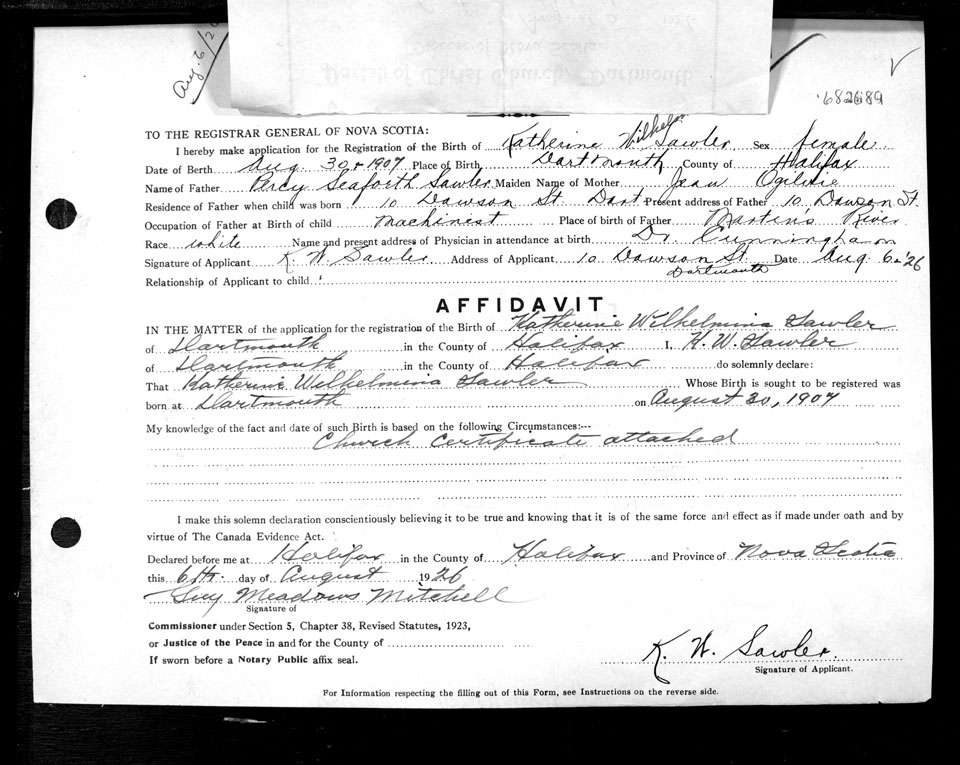 Aug. 6/26
682689
TO THE REGISTRAR GENERAL OF NOVA SCOTIA:
I hereby make application for the Registration of the Birth of Katherine Wilhel. Sawler Sex female
Date of Berth Aug 30, 1907 Place of Birth, Dartmouth County of Halifax
Name of Father Percy Seaforth Sawler Maiden Name of Mother Jean Ogilvie
Residence of Father when child was born 10 Dawson St Dart Present address of Father 10 Dawson St.
Occupation of Father at Birth of child Machinist Place of birth of Father Martin's River
Race white Name and present address of Physician in attendance at birth Dr. Cunningham
Signature of Applicant K W Sawler Address of Applicant 10 Dawson St. Dartmouth Date Aug 6 '26
Relationship of Applicant to child
AFFIDAVIT
IN THE MATTER of the application for the registration of the Birth of Katherine Wilhelmina Sawler
of Dartmouth in the County of Halifax I, K. W. Sawler
of Dartmouth in the County of Halifax do solemnly declare:
That Katherine Wilhelmina Sawler Whose Birth is sought to be registered was
born at Dartmouth on August 30, 1907
My knowledge of the fact and date of such Birth is based on the following Circumstances:---
Church Certificate attached
I make this solemn declaration conscientiously believing it to be true and knowing that it is of the same force and effect as if made under oath and by
virtue of The Canada Evidence Act.
Declared before me at Halifax in the County of Halifax and Province of Nova Scotia
this 6th. day of August 1926
Guy Meadows Mitchell
Signature of
Commissioner under Section 5, Chapter 38, Revised Statutes, 1923,
or Justice of the Peace in and for the County of
If sworn before a Notary Public affix seal.
K. W. Sawler.
Signature of Applicant.
For Information respecting the filling out of this Form, see Instructions on the reverse side.